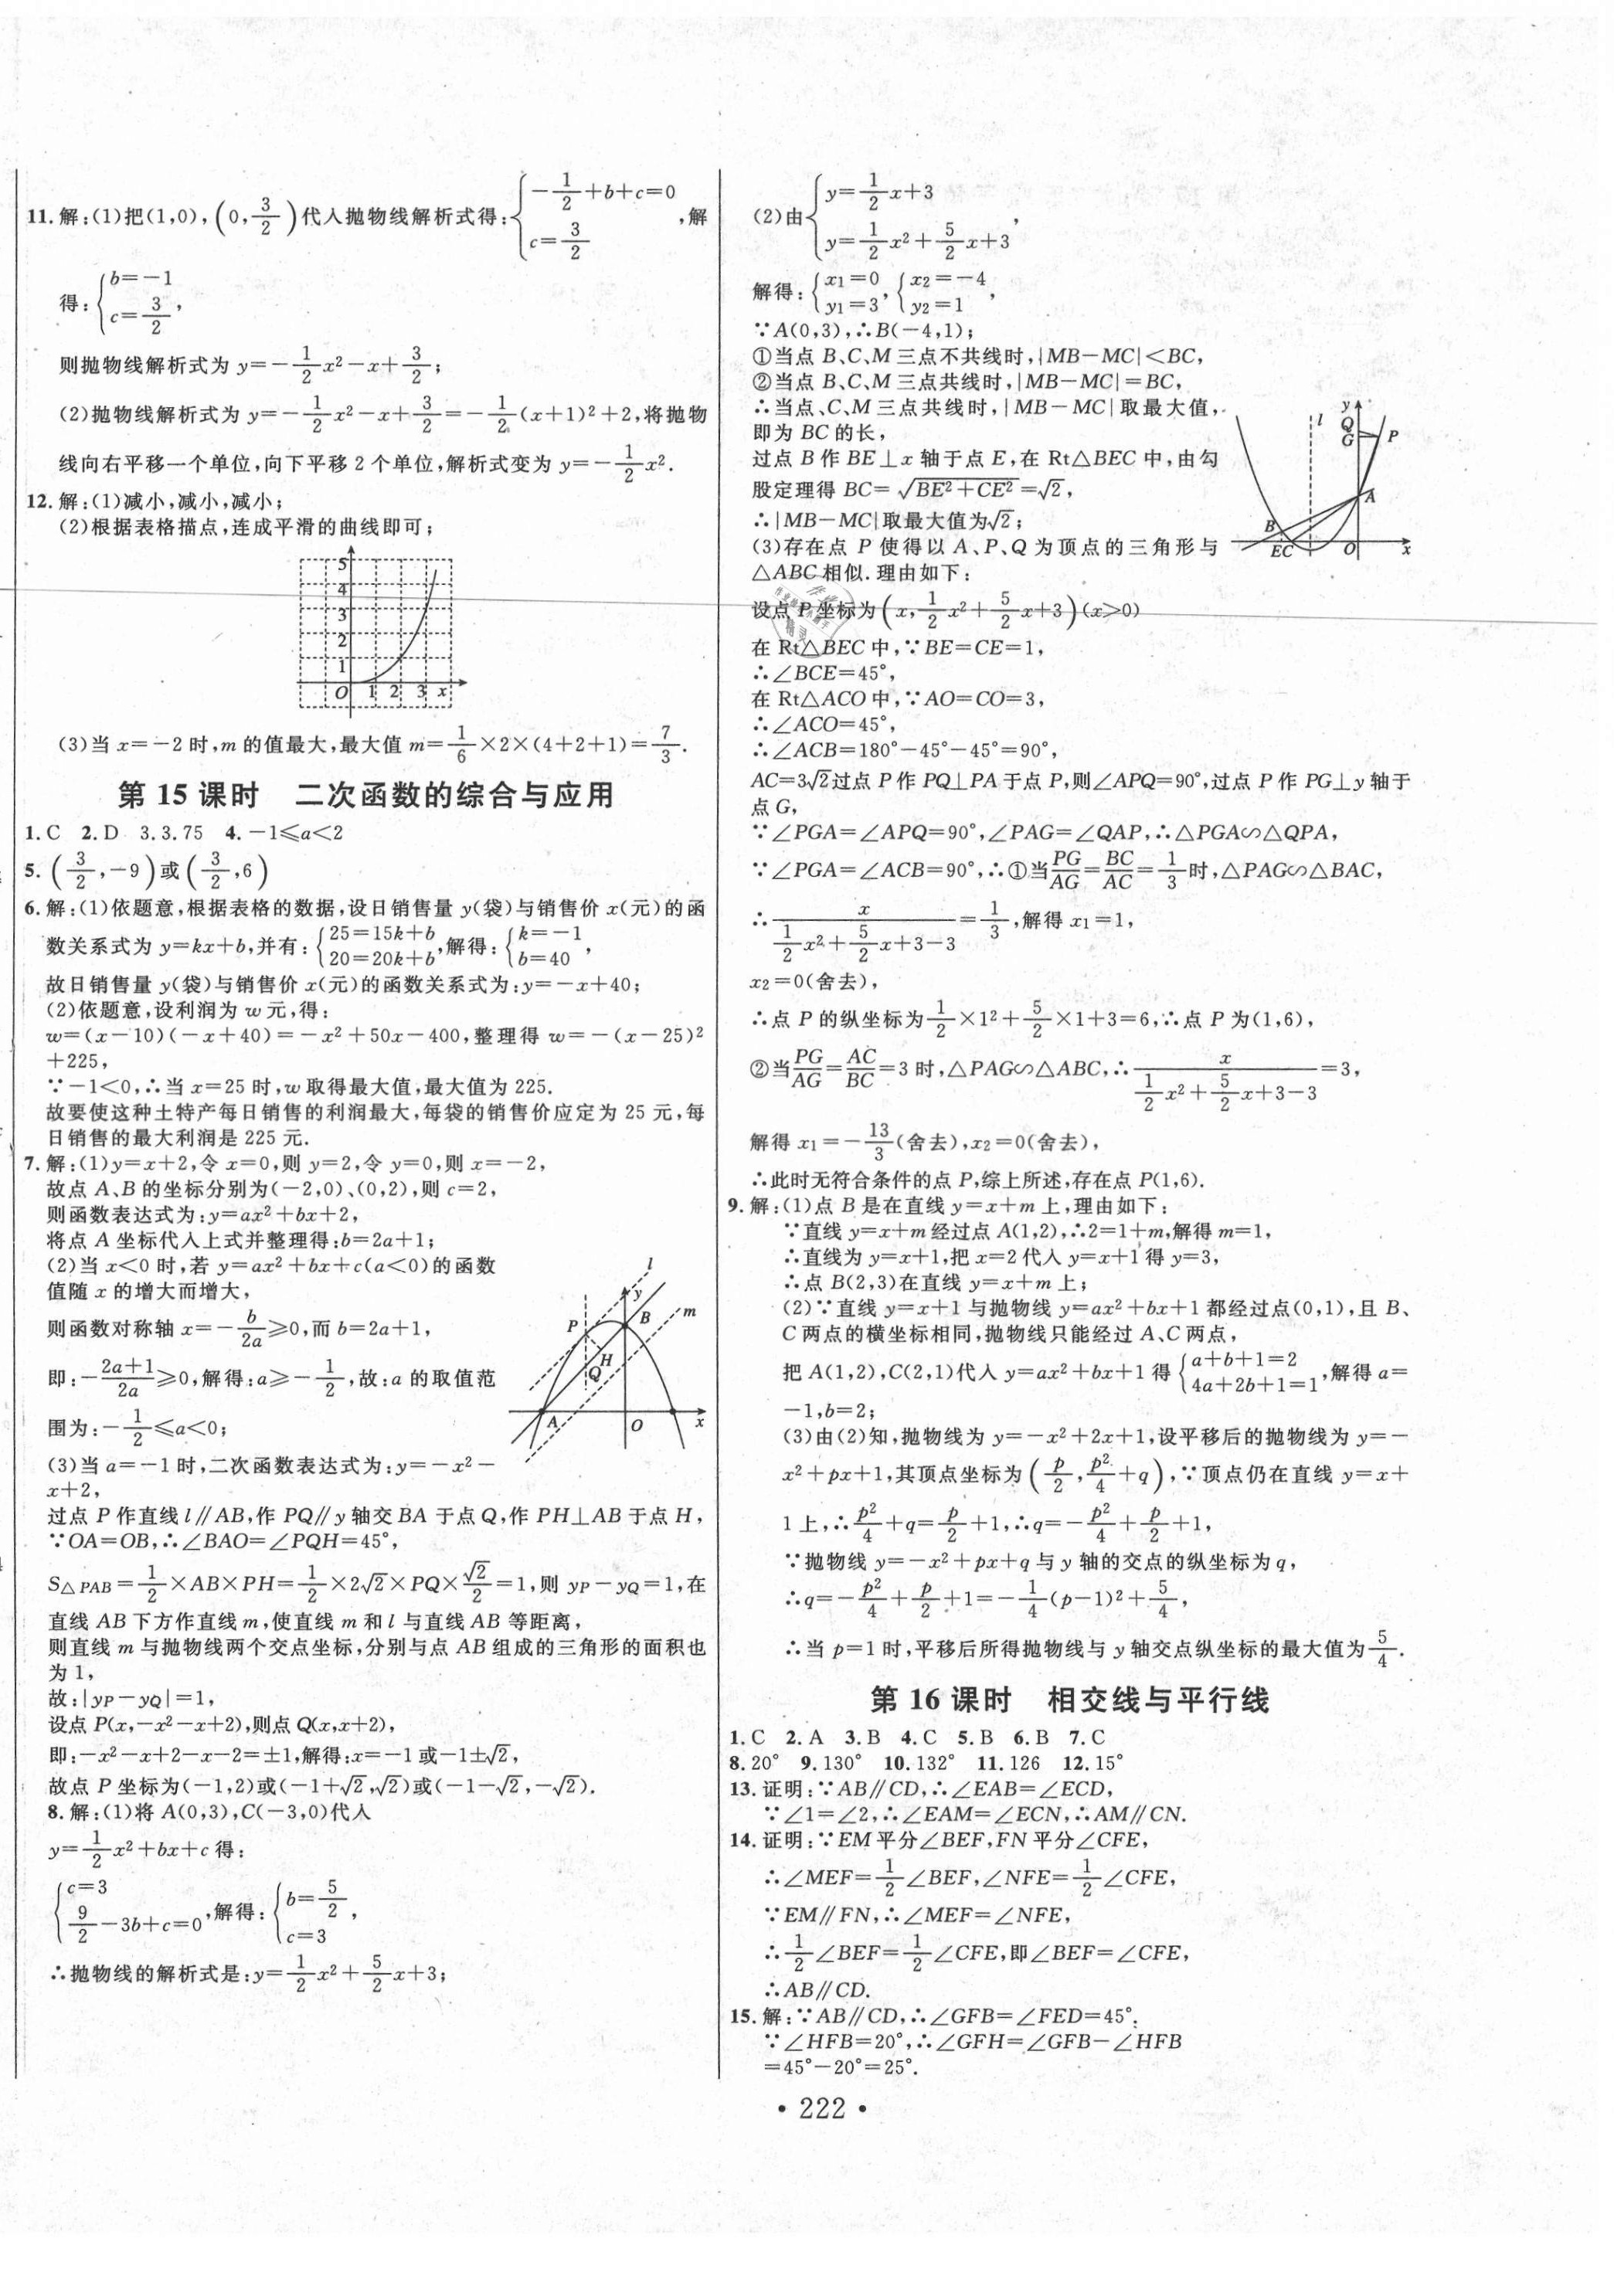 11.解:(1)把(1,0),(0,3/2)代入抛物线解析式得:{-1/2+b+c=0 c=3/2,解
得:{b=-1 c=3/2,
则抛物线解析式为 y=-1/2x²-x+3/2;
(2)抛物线解析式为 y=-1/2x²-x+3/2=-1/2(x+1)²+2,将抛物
线向右平移一个单位,向下平移 2 个单位,解析式变为 y=-1/2x².
12.解:(1)减小,减小,减小;
(2)根据表格描点,连成平滑的曲线即可;
5
4
3
2
1
O 1 2 3 x
(3)当 x=-2 时,m 的值最大,最大值 m=1/6×2×(4+2+1)=7/3.
第 15 课时 二次函数的综合与应用
1.C 2.D 3.3.75 4.-1≤a<2
5.(3/2,-9)或(3/2,6)
6.解:(1)依题意,根据表格的数据,设日销售量 y(袋)与销售价 x(元)的函
数关系式为 y=kx+b,并有:{25=15k+b 20=20k+b,解得:{k=-1 b=40,
故日销售量 y(袋)与销售价 x(元)的函数关系式为:y=-x+40;
(2)依题意,设利润为 w 元,得:
w=(x-10)(-x+40)=-x²+50x-400,整理得 w=-(x-25)²
+225,
∵-1<0,∴当 x=25 时,w 取得最大值,最大值为 225.
故要使这种土特产每日销售的利润最大,每袋的销售价应定为 25 元,每
日销售的最大利润是 225 元.
7.解:(1)y=x+2,令 x=0,则 y=2,令 y=0,则 x=-2,
故点 A、B 的坐标分别为(-2,0)、(0,2),则 c=2,
则函数表达式为:y=ax²+bx+2,
将点 A 坐标代入上式并整理得:b=2a+1;
(2)当 x<0 时,若 y=ax²+bx+c(a<0)的函数
值随 x 的增大而增大,
则函数对称轴 x=-b/2a≥0,而 b=2a+1,
即:-(2a+1)/2a≥0,解得:a≥-1/2,故:a 的取值范
围为:-1/2≤a<0;
l
y
P B m
H
Q
A O x
(3)当 a=-1 时,二次函数表达式为:y=-x²-
x+2,
过点 P 作直线 l∥AB,作 PQ∥y 轴交 BA 于点 Q,作 PH⊥AB 于点 H,
∵OA=OB,∴∠BAO=∠PQH=45°,
S△PAB=1/2×AB×PH=1/2×2√2×PQ×√2/2=1,则 yP-yQ=1,在
直线 AB 下方作直线 m,使直线 m 和 l 与直线 AB 等距离,
则直线 m 与抛物线两个交点坐标,分别与点 AB 组成的三角形的面积也
为 1,
故:|yP-yQ|=1,
设点 P(x,-x²-x+2),则点 Q(x,x+2),
即:-x²-x+2-x-2=±1,解得:x=-1 或-1±√2,
故点 P 坐标为(-1,2)或(-1+√2,√2)或(-1-√2,-√2).
8.解:(1)将 A(0,3),C(-3,0)代入
y=1/2x²+bx+c 得:
{c=3 9/2-3b+c=0,解得:{b=5/2 c=3,
∴抛物线的解析式是:y=1/2x²+5/2x+3;
(2)由{y=1/2x+3 y=1/2x²+5/2x+3,
解得:{x1=0 y1=3,{x2=-4 y2=1,
∵A(0,3),∴B(-4,1);
①当点 B、C、M 三点不共线时,|MB-MC|<BC,
②当点 B、C、M 三点共线时,|MB-MC|=BC,
∴当点、C、M 三点共线时,|MB-MC|取最大值,
即为 BC 的长,
过点 B 作 BE⊥x 轴于点 E,在 Rt△BEC 中,由勾
股定理得 BC=√BE²+CE²=√2,
∴|MB-MC|取最大值为√2;
y
l Q
G P
A
B
EC O x
(3)存在点 P 使得以 A、P、Q 为顶点的三角形与
△ABC 相似.理由如下:
设点 P 坐标为(x,1/2x²+5/2x+3)(x>0)
在 Rt△BEC 中,∵BE=CE=1,
∴∠BCE=45°,
在 Rt△ACO 中,∵AO=CO=3,
∴∠ACO=45°,
∴∠ACB=180°-45°-45°=90°,
AC=3√2过点 P 作 PQ⊥PA 于点 P,则∠APQ=90°,过点 P 作 PG⊥y 轴于
点 G,
∵∠PGA=∠APQ=90°,∠PAG=∠QAP,∴△PGA∽△QPA,
∵∠PGA=∠ACB=90°,∴①当PG/AG=BC/AC=1/3时,△PAG∽△BAC,
∴x/(1/2x²+5/2x+3-3)=1/3,解得 x1=1,
x2=0(舍去),
∴点 P 的纵坐标为1/2×1²+5/2×1+3=6,∴点 P 为(1,6),
②当PG/AG=AC/BC=3 时,△PAG∽△ABC,∴x/(1/2x²+5/2x+3-3)=3,
解得 x1=-13/3(舍去),x2=0(舍去),
∴此时无符合条件的点 P,综上所述,存在点 P(1,6).
9.解:(1)点 B 是在直线 y=x+m 上,理由如下:
∵直线 y=x+m 经过点 A(1,2),∴2=1+m,解得 m=1,
∴直线为 y=x+1,把 x=2 代入 y=x+1 得 y=3,
∴点 B(2,3)在直线 y=x+m 上;
(2)∵直线 y=x+1 与抛物线 y=ax²+bx+1 都经过点(0,1),且 B、
C 两点的横坐标相同,抛物线只能经过 A、C 两点,
把 A(1,2),C(2,1)代入 y=ax²+bx+1 得{a+b+1=2 4a+2b+1=1,解得 a=
-1,b=2;
(3)由(2)知,抛物线为 y=-x²+2x+1,设平移后的抛物线为 y=-
x²+px+1,其顶点坐标为(p/2,p²/4+q),∵顶点仍在直线 y=x+
1 上,∴p²/4+q=p/2+1,∴q=-p²/4+p/2+1,
∵抛物线 y=-x²+px+q 与 y 轴的交点的纵坐标为 q,
∴q=-p²/4+p/2+1=-1/4(p-1)²+5/4,
∴当 p=1 时,平移后所得抛物线与 y 轴交点纵坐标的最大值为5/4.
第 16 课时 相交线与平行线
1.C 2.A 3.B 4.C 5.B 6.B 7.C
8.20° 9.130° 10.132° 11.126 12.15°
13.证明:∵AB∥CD,∴∠EAB=∠ECD,
∵∠1=∠2,∴∠EAM=∠ECN,∴AM∥CN.
14.证明:∵EM 平分∠BEF,FN 平分∠CFE,
∴∠MEF=1/2∠BEF,∠NFE=1/2∠CFE,
∵EM∥FN,∴∠MEF=∠NFE,
∴1/2∠BEF=1/2∠CFE,即∠BEF=∠CFE,
∴AB∥CD.
15.解:∵AB∥CD,∴∠GFB=∠FED=45°.
∵∠HFB=20°,∴∠GFH=∠GFB-∠HFB
=45°-20°=25°.
• 222 •